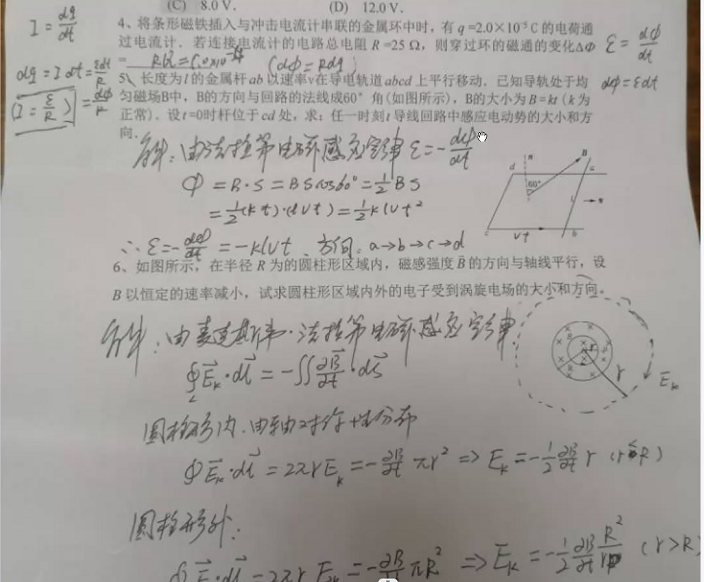 (C) 8.0 V. (D) 12.0 V.
I = dq/dt
4、将条形磁铁插入与冲击电流计串联的金属环中时，有 q=2.0×10⁻⁵ C 的电荷通
过电流计．若连接电流计的电路总电阻 R=25 Ω，则穿过环的磁通的变化ΔΦ
ε = dΦ/dt
dq = I dt = εdt/R
(dΦ = Rdq)
dΦ = εdt
(I = ε/R) = dΦ/R
5、长度为 l 的金属杆 ab 以速率 v 在导电轨道 abcd 上平行移动．已知导轨处于均
匀磁场B中，B的方向与回路的法线成60°角(如图所示)，B的大小为 B=kt (k 为
正常)．设 t=0时杆位于 cd 处，求：任一时刻 t 导线回路中感应电动势的大小和方
向．
解：由法拉第电磁感应定律 ε = -dΦ/dt
Φ = B·S = BS cos60° = 1/2 BS
= 1/2 (kt)·(lvt) = 1/2 klvt²
∴ ε = -dΦ/dt = -klvt 方向：a→b→c→d
d n B a 60° l v c vt b
6、如图所示，在半径 R 为的圆柱形区域内，磁感强度 B 的方向与轴线平行，设
B 以恒定的速率减小，试求圆柱形区域内外的电子受到涡旋电场的大小和方向。
解：由麦克斯韦·法拉第电磁感应定律
∮L E⃗k·dl⃗ = -∬ ∂B⃗/∂t·dS⃗
r Ek
圆柱形内，由轴对称性分布
∮E⃗k·dl⃗ = 2πrEk = -∂B/∂t πr² ⇒ Ek = -1/2 ∂B/∂t r (r≤R)
圆柱形外：
∮E⃗k·dl⃗ = 2πr Ek = -∂B/∂t πR² ⇒ Ek = -1/2 ∂B/∂t R²/r (r>R)